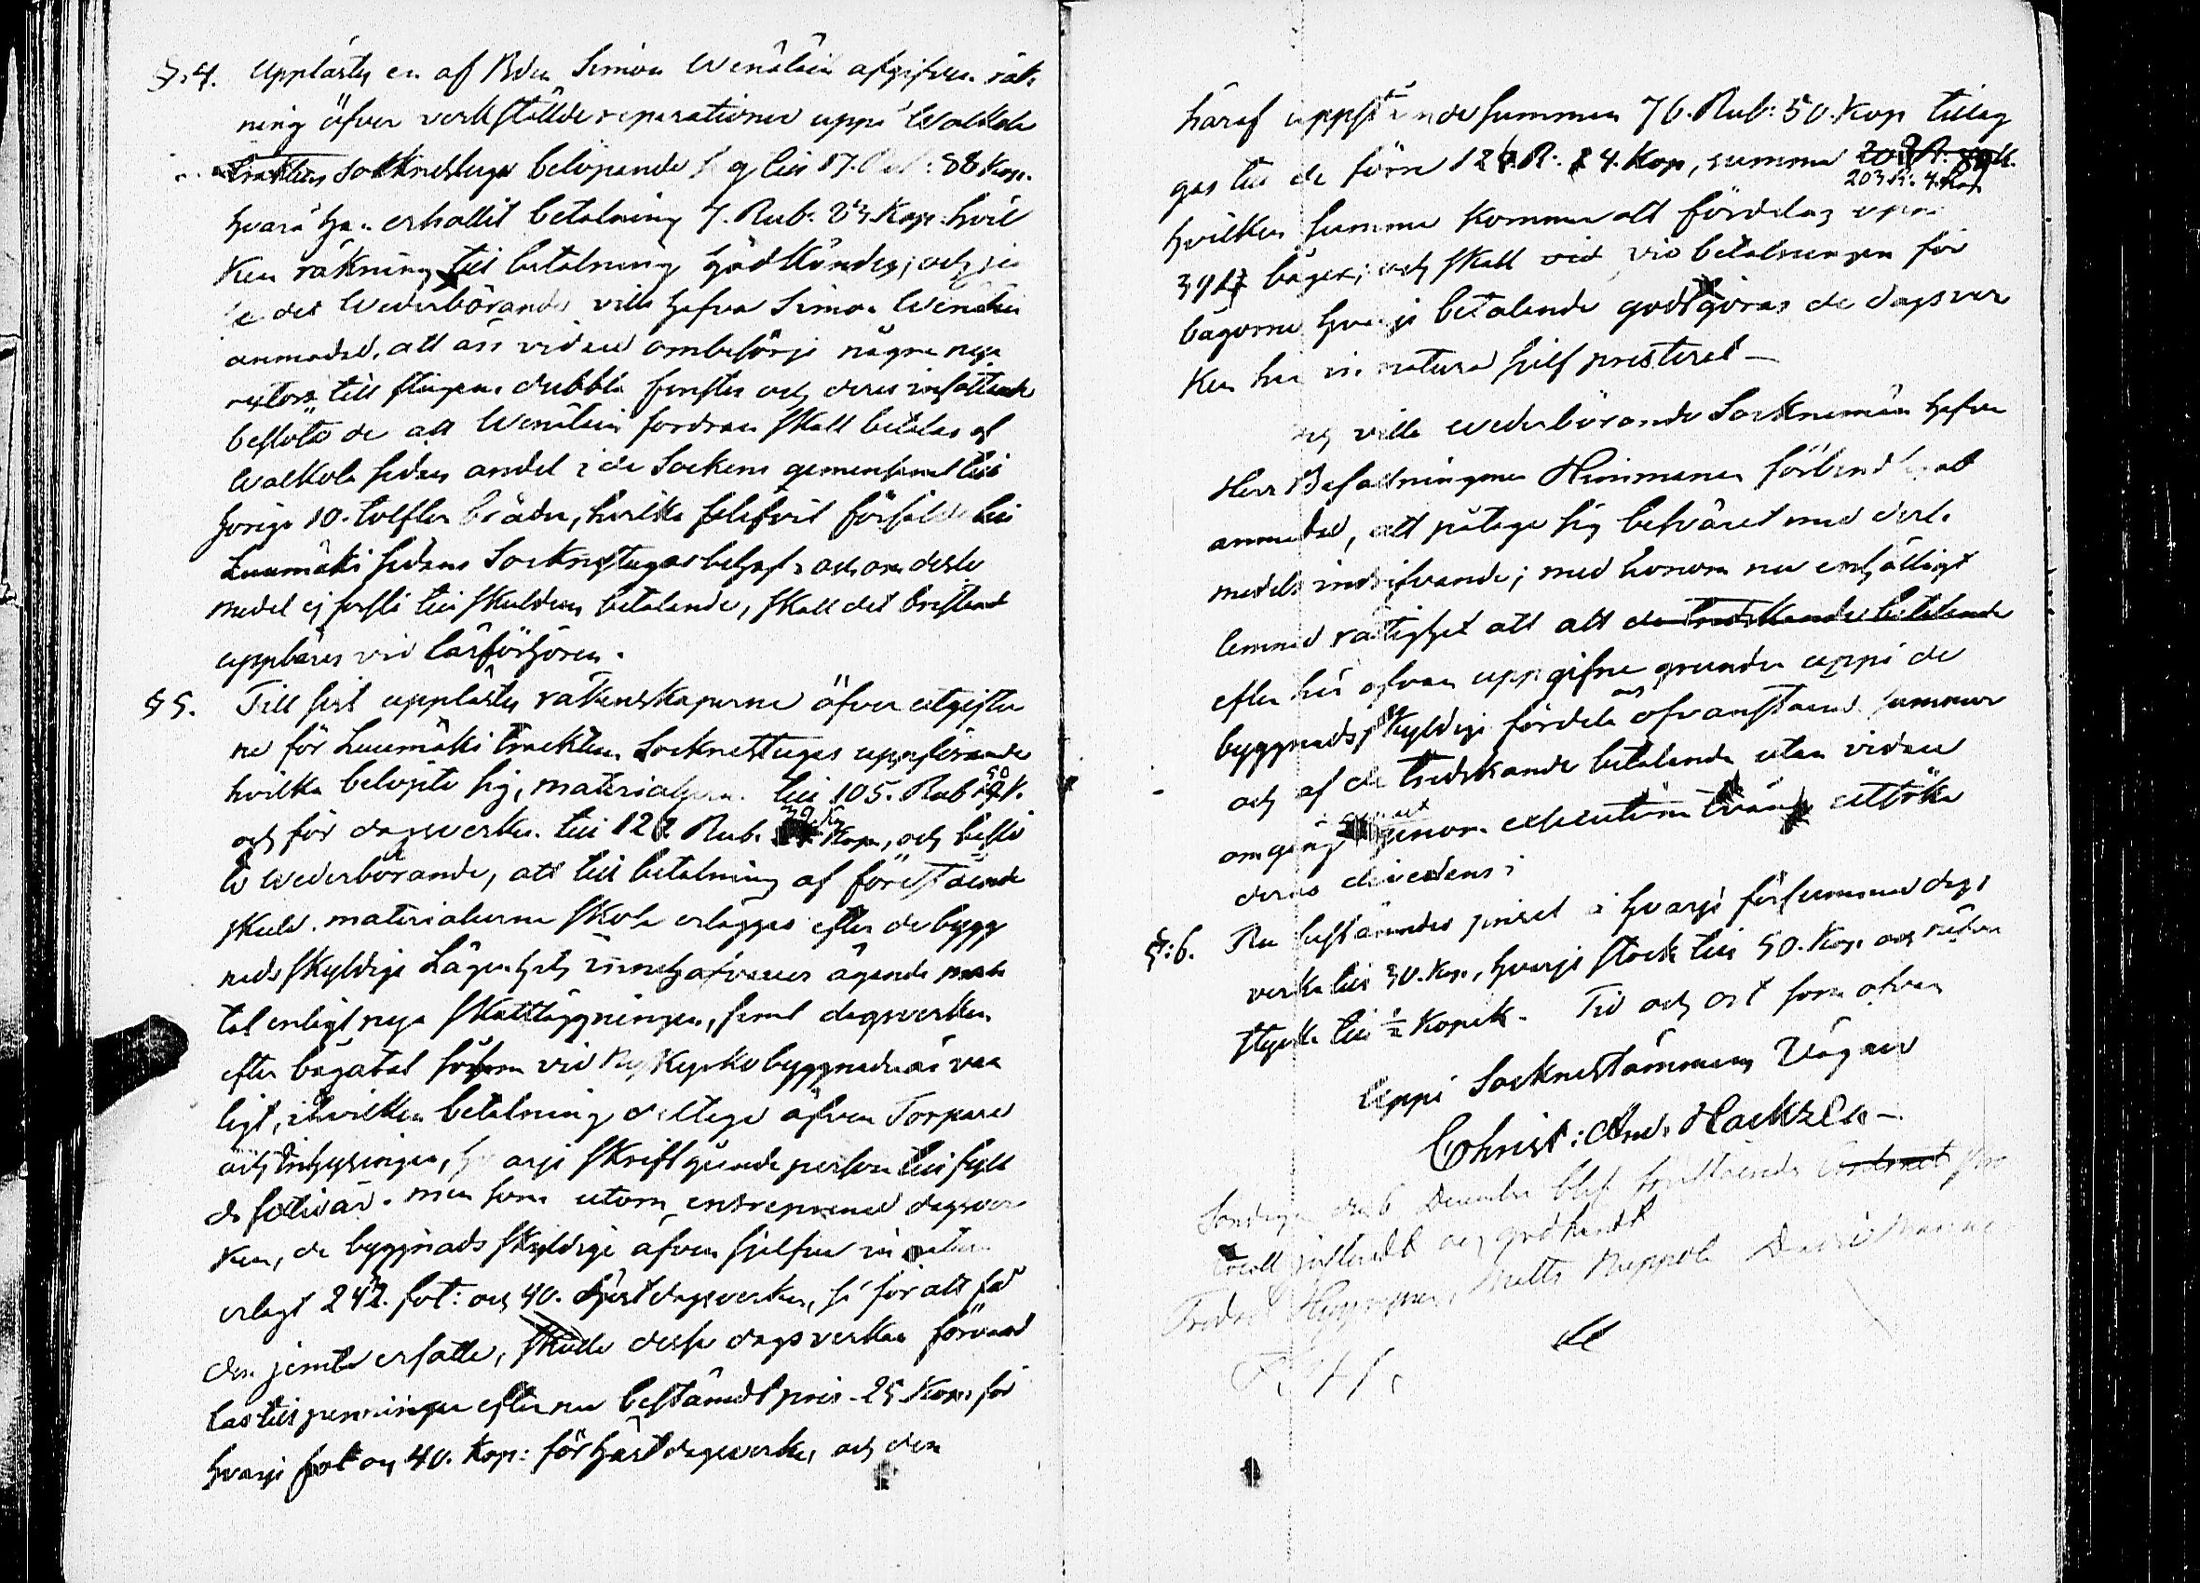 §:4. Upplästes en af Bdn Simon Wenäläin afgifven räk
ning öfver verkstälde reparationer uppå Walkola
traktens Socknestuga belöpande sig till 17. Rub: 88 Kop.
hvarå han erhållit betalning 7. Rub. 23 Kop. hvil
ken räkning till betalning godkändes; och
det Wederbörande ville hafva Simon Wenäläin
anmodad, att än vidare ombesörja några nya
till stugans dubbla fenster och deras insättande
beslöto de att Wenäläin fordran skall betalas af
Walkola sidans andel i de Socknens gemensamt till
hörige 10. tolfter bräder, hvilka blifvit försålde till
Luumäki sidans Socknestugas behof, och om desse
medel ej förslå till skuldens betalande, skall det bristande
uppbäras vid läsförhören.
§ 5. Till sist upplästes räkenskaperna öfver utgifter
ne för Luumäki traktens Socknestugas uppförande
hvilka belöpte sig, materialerna till 105. Rub 50 K.
och för dagsverken till 127 Rub. 39 K. Kop., och beslö
to Wederbörande, att till betalning af föreståënde
skuld. materialierne skola erläggas efter de bygg
nadsskyldige Lägenhets innehafvares ägande man
tal enligt nya skattläggningen, samt dagsverken
efter bågatal såsom vid Ny Kyrko byggnaden är van
ligt, i hvilken betalning deltaga äfven Torpare
och Inhysingar, hvarje skriftgående person till fyll
de sextio år. men som utom entreprenad dagsver
ken, de byggnads skyldige äfven sjelfve in natura
erlagt 242. fot: och 40. hjest dagsverken, så för att få
den jemte ersatte, skulle desse dagsverken förvand
las till penningar efter nu bestämdt pris 25 Kop. för
hvarje fot och 40. Kop: för hästdagsverke, och den
häraf uppståënde summan 76. Rub: 50. Kop tillag
gas till de förra 126. R: 24. Kop, summa 203 R. 4. Kop
hvilken summa kommer att fördelas uppå
bågar; och skall vid betalningen för
bågorne hvarje betalande godtgöras de dagsver
ken han in natura sjelf presterat –
och ville wederbörande Socknemän hafva
Herr Befallningsman Himmanen förbindligast
anmodad, att påtaga sig besväret med dessa
medels indrifvande; med honom nu enhälligt
lemnad rättighet att att de tredskande betalande
efter här ofvan uppgifne grunder uppå de
byggnads skyldige fördela ofvanstående summor
och af de tredskande betalande utan vidare
omgång genom executivt tvång utsöka
deras dividens;
§:6. Nu bestämdes priset å hvarje försummad dags
verke till 30. Kop, hvarje stock till 50. Kop och
stycke till ½ Kopek. Tid och ort som ofvan
Uppå Socknestämmans Vägnar
Christ: And: Hackzell –
Söndagen den 6 December blef föreståënde Contract Pro
tocoll justeradt och godkändt
Fredric Matts